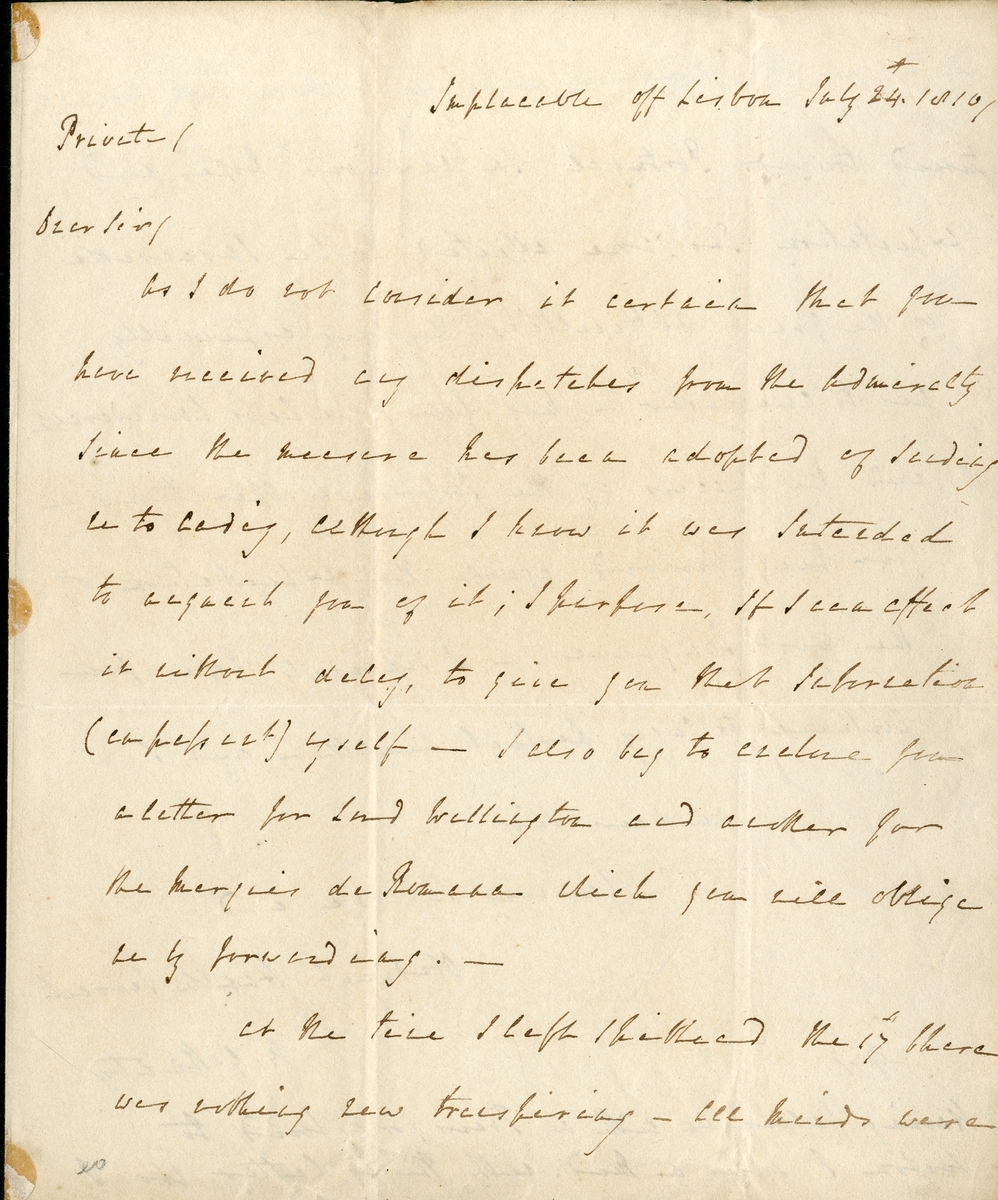 Implacable off Lisbon July 24th 1810/
Private/
Dear Sir/
As I do not consider it certain that you
have received any dispatches from the Admiralty
since the measure has been adopted of sending
me to Cadiz, although I know it was intended
to acquaint you of it; I purpose, If I can effect
it without delay, to give you that Information
(en passant) myself — I also beg to enclose you
a letter for Lord Wellington and another for
the Marquis de Romana which you will oblige
me by forwarding. —
At the time I left Spithead the 17th there
was nothing new transpiring — all minds were